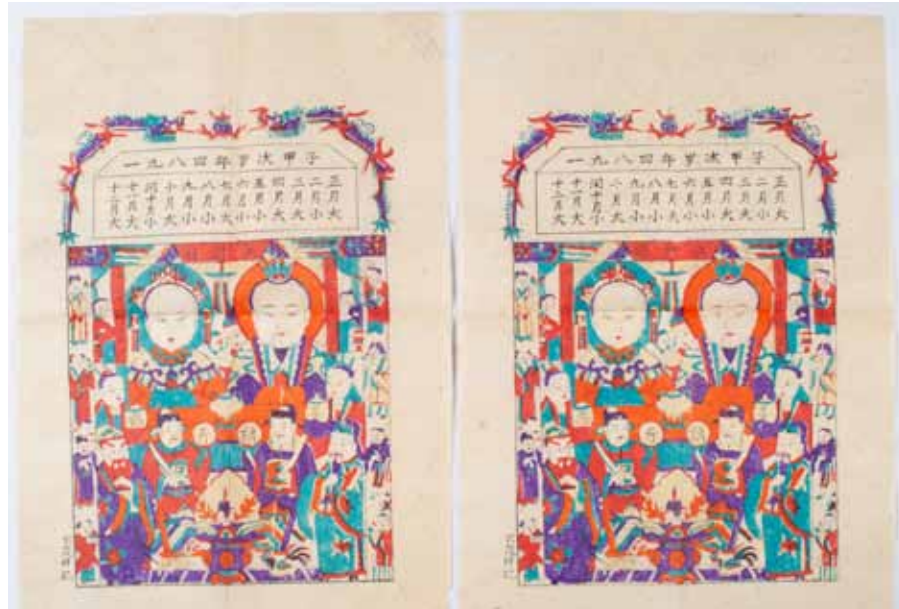 一九八四年岁次甲子
正月大
二月小
三月大
四月大
五月小
六月小
七月大
八月小
九月小
十月大
闰十月小
十一月大
十二月大
一九八四年岁次甲子
正月大
二月小
三月大
四月大
五月小
六月小
七月大
八月小
九月小
十月大
闰十月小
十一月大
十二月大